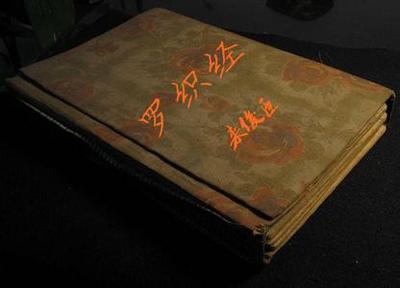 罗织经
来俊臣